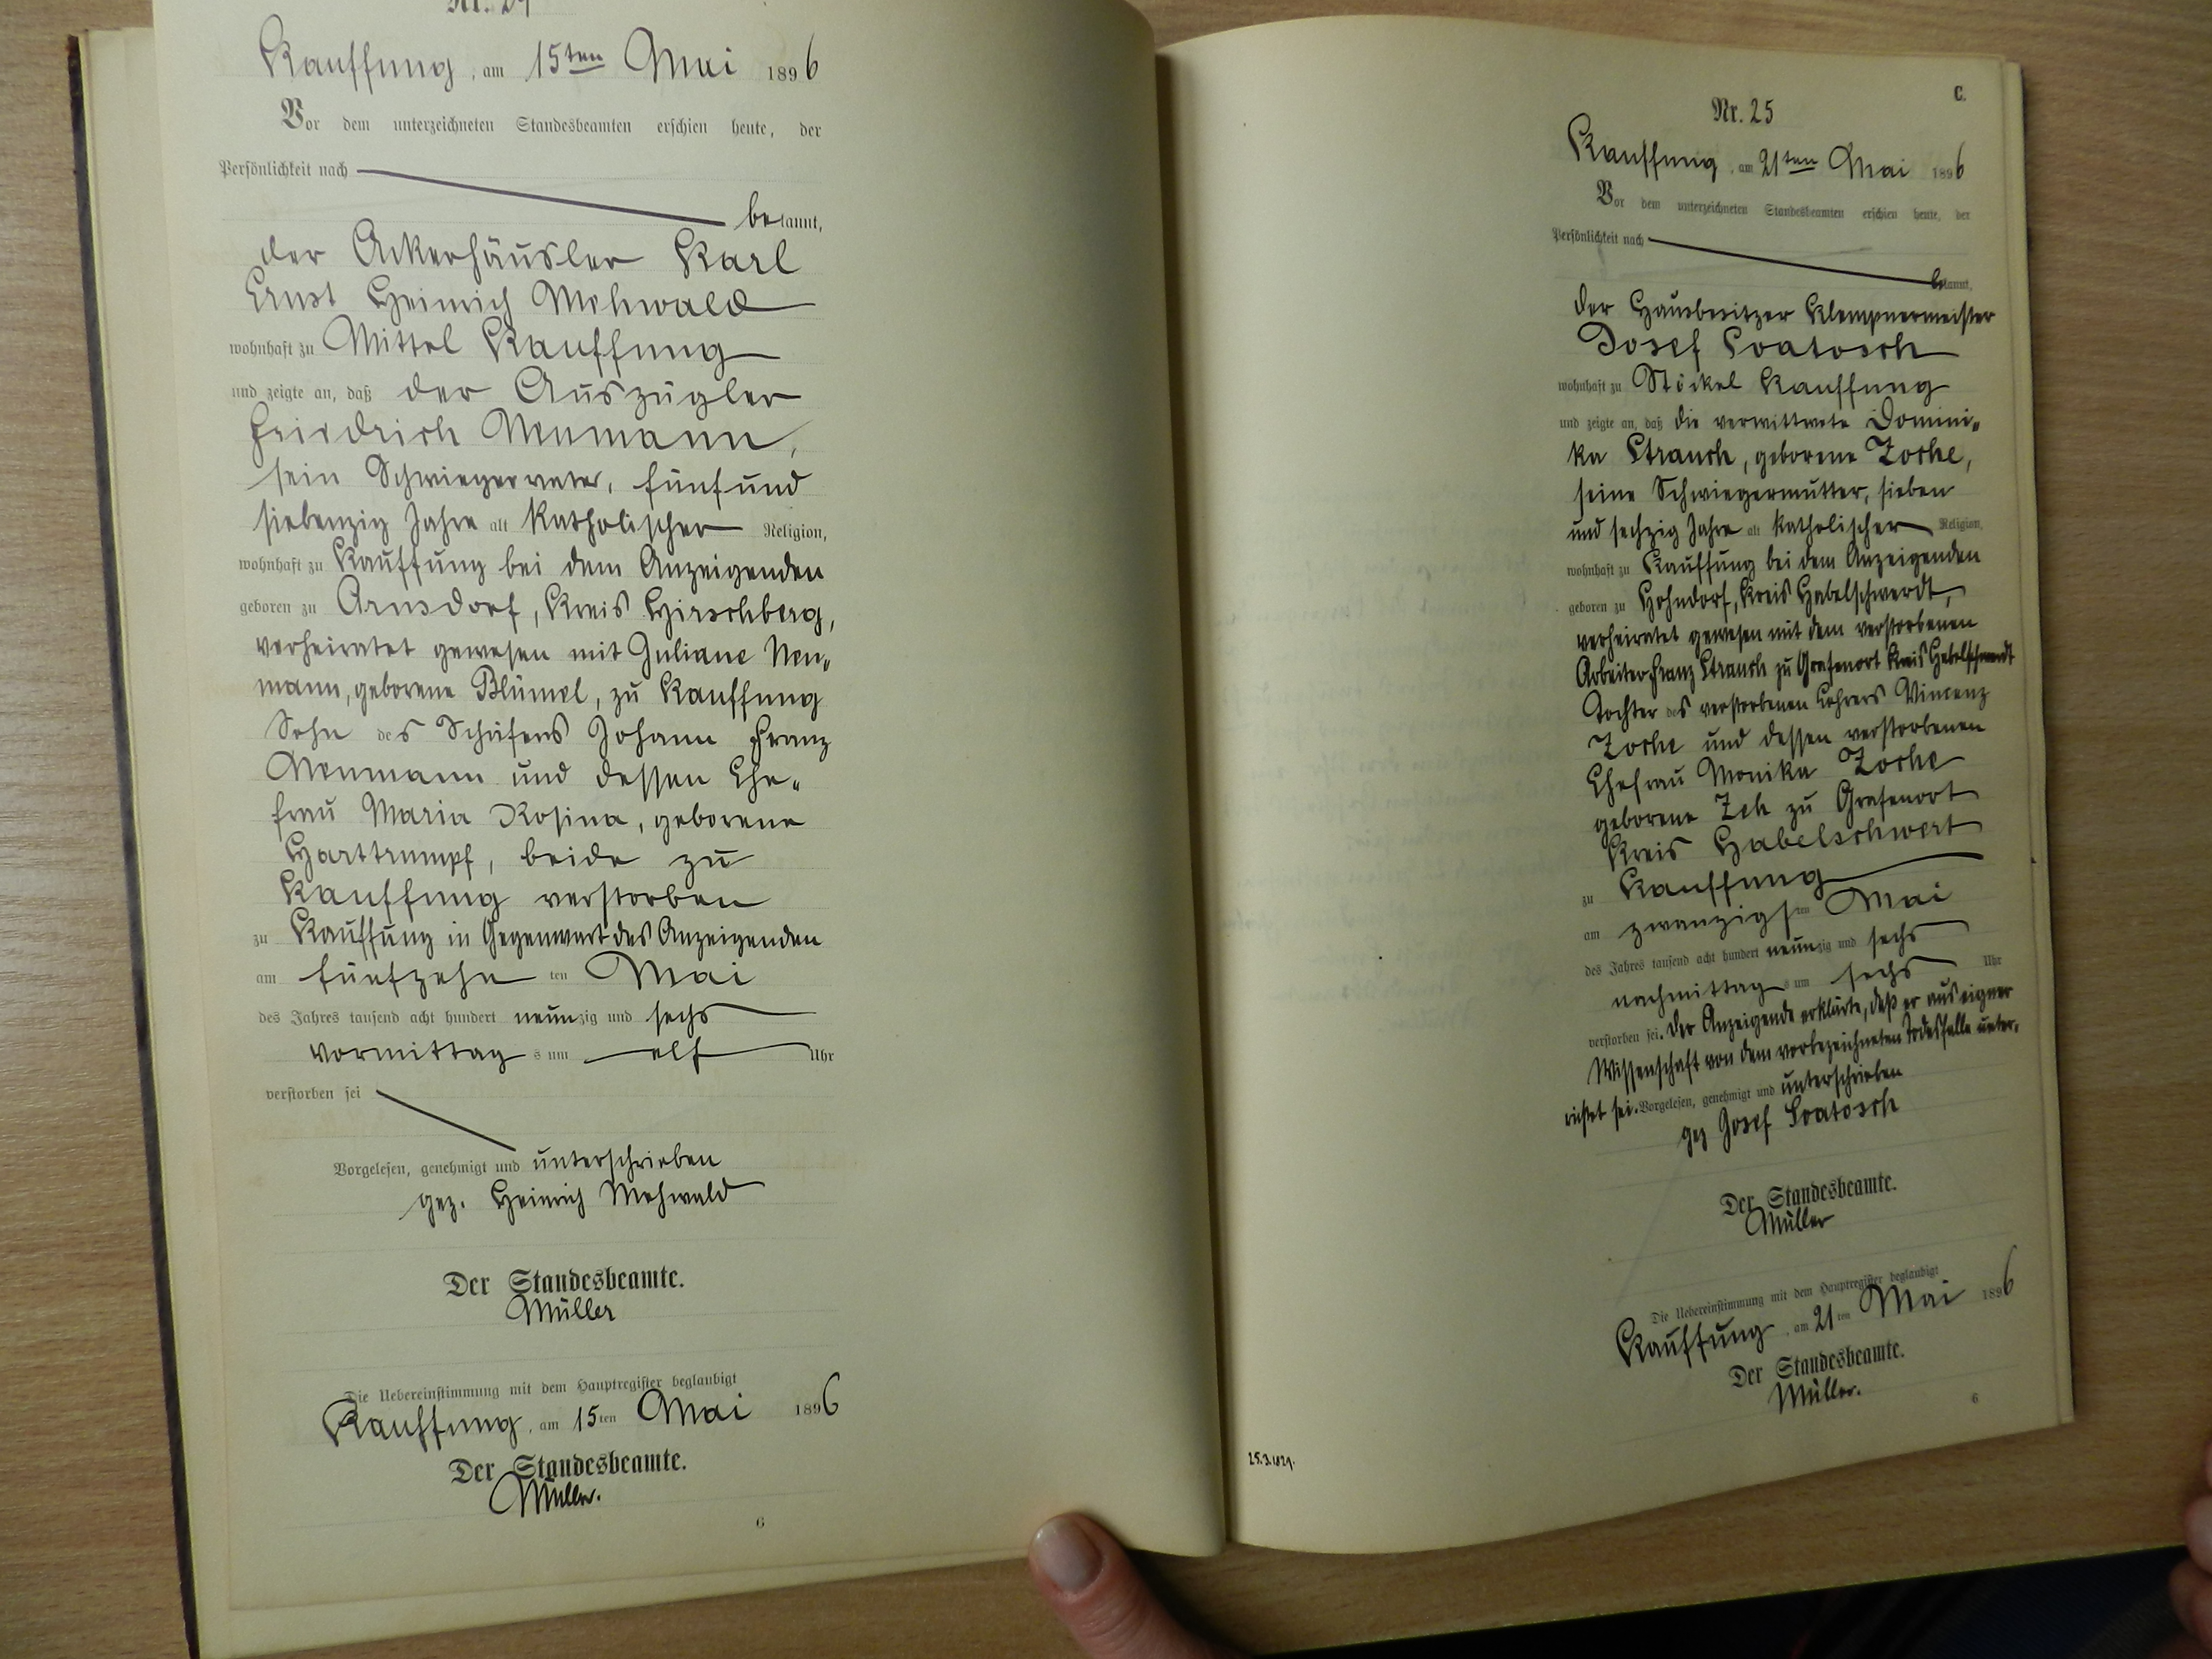 Nr. 24
Kauffung, am 15ten Mai 1896
Vor dem unterzeichneten Standesbeamten erschien heute, der
Persönlichkeit nach
bekannt,
der Ackerhäusler Karl
Ernst Heinrich Mehwald
wohnhaft zu Mittel Kauffung
und zeigte an, daß der Auszügler
Friedrich Neumann,
sein Schwiegervater, fünfund
siebenzig Jahre alt katholischer Religion,
wohnhaft zu Kauffung bei dem Anzeigenden
geboren zu Arnsdorf, Kreis Hirschberg,
verheiratet gewesen mit Juliane Neu„
mann, geborene Blümel, zu Kauffung
Sohn des Schäfers Johann Franz
Neumann und dessen Ehe„
frau Maria Rosina, geborene
Harttrumpf, beide zu
Kauffung verstorben
zu Kauffung in Gegenwart des Anzeigenden
am fünfzehn ten Mai
des Jahres tausend acht hundert neunzig und sechs
vormittag s um elf Uhr
verstorben sei
Vorgelesen, genehmigt und unterschrieben
gez. Heinrich Mehwald
Der Standesbeamte.
Müller
Die Uebereinstimmung mit dem Hauptregister beglaubigt
Kauffung, am 15ten Mai 1896
Der Standesbeamte.
Müller.
6
C.
Nr. 25
Kauffung, am 21ten Mai 1896
Vor dem unterzeichneten Standesbeamten erschien heute, der
Persönlichkeit nach
bekannt,
der Hausbesitzer Klempnermeister
Josef Svatosch
wohnhaft zu Stöckel Kauffung
und zeigte an, daß die verwittwete Domini„
ka Strauch, geborene Zoche,
seine Schwiegermutter, sieben
und sechzig Jahre alt katholischer Religion,
wohnhaft zu Kauffung bei dem Anzeigenden
geboren zu Hohndorf, Kreis Habelschwerdt,
verheiratet gewesen mit dem verstorbenen
Arbeiter Franz Strauch zu Grafenort Kreis Habelschwerdt
Tochter des verstorbenen Lehrers Vincenz
Zoche und dessen verstorbenen
Ehefrau Monika Zoche
geborene Zeh zu Grafenort
Kreis Habelschwert
zu Kauffung
am zwanzigsten Mai
des Jahres tausend acht hundert neunzig und sechs
nachmittag s um sechs Uhr
verstorben sei. Der Anzeigende erklärte, daß er aus eigner
Wissenschaft von dem vorbezeichneten Todesfalle unter„
richtet sei. Vorgelesen, genehmigt und unterschrieben
gez Josef Svatosch
Der Standesbeamte.
Müller
Die Uebereinstimmung mit dem Hauptregister beglaubigt
Kauffung, am 21ten Mai 1896
Der Standesbeamte.
Müller.
6
25.3.1829.